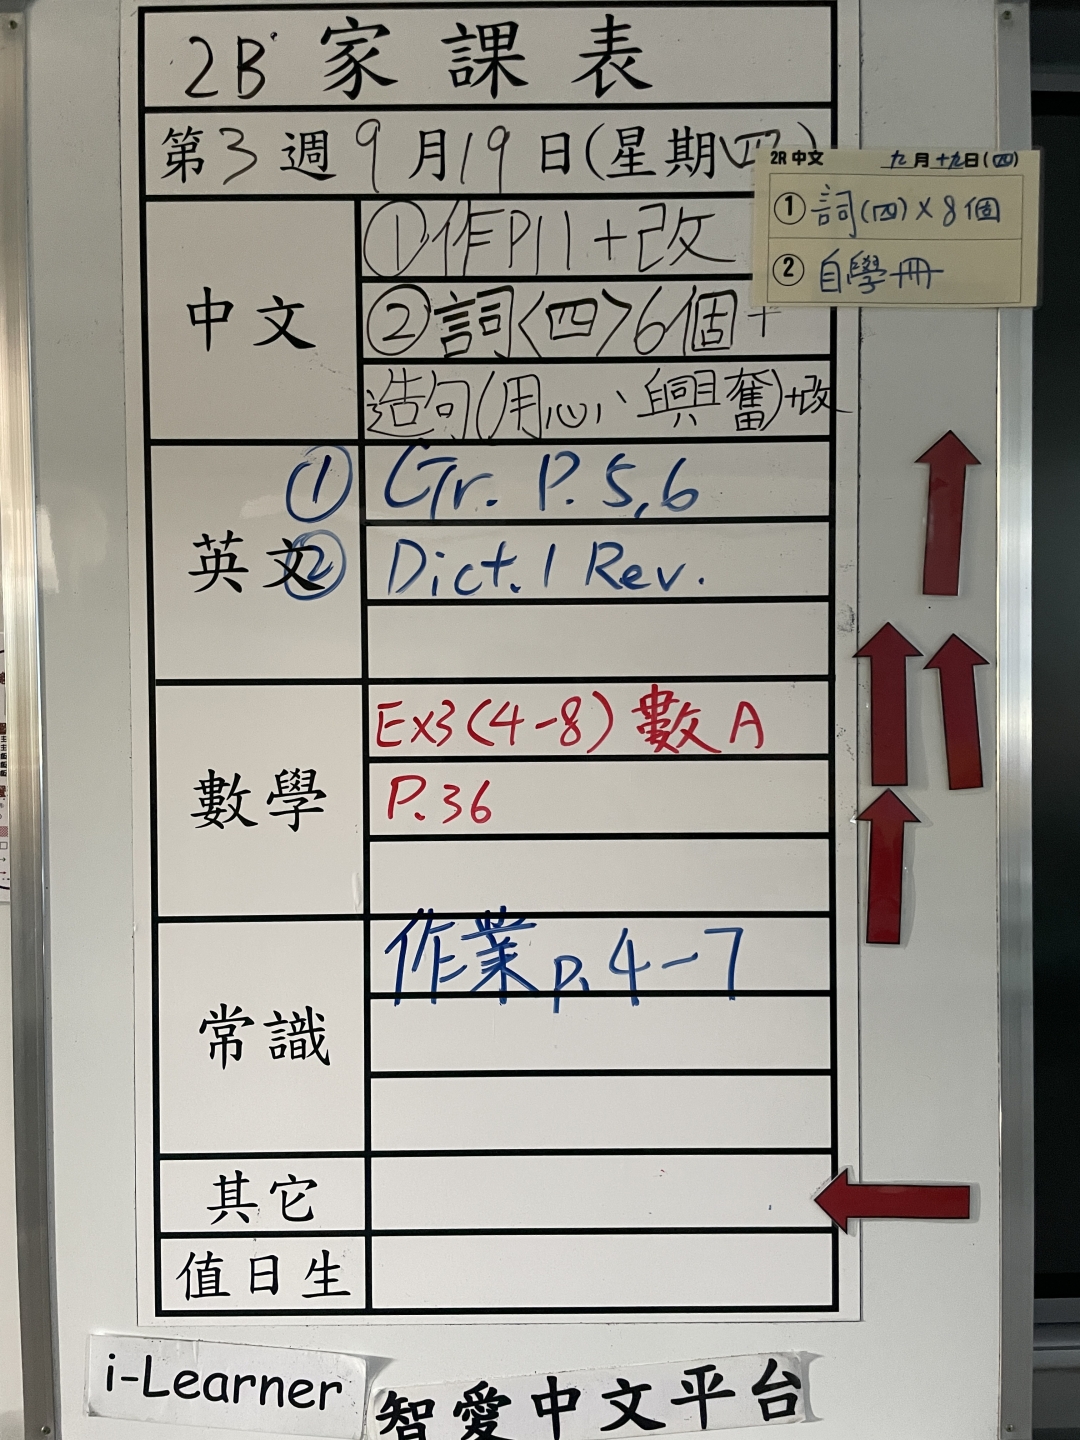 2B 家課表
第3週9月19日(星期四)
2R 中文 九月十九日(四)
① 詞(四)×8個
② 自學冊
中文
①作P11+改
②詞〈四〉6個+
造句(用心、興奮)+改
英文
① Gr. P. 5,6
② Dict. 1 Rev.
數學
Ex3(4-8) 數A
P.36
常識
作業 p. 4-7
其它
值日生
i-Learner
智愛中文平台